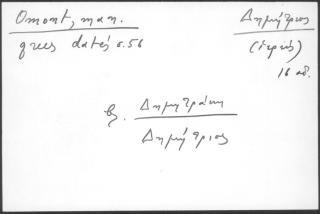 Omont, man.
grecs datés σ. 56
Δημήτριος
(ἱερεύς)
16 αἰ.
Δημητράκη
Δημήτριος